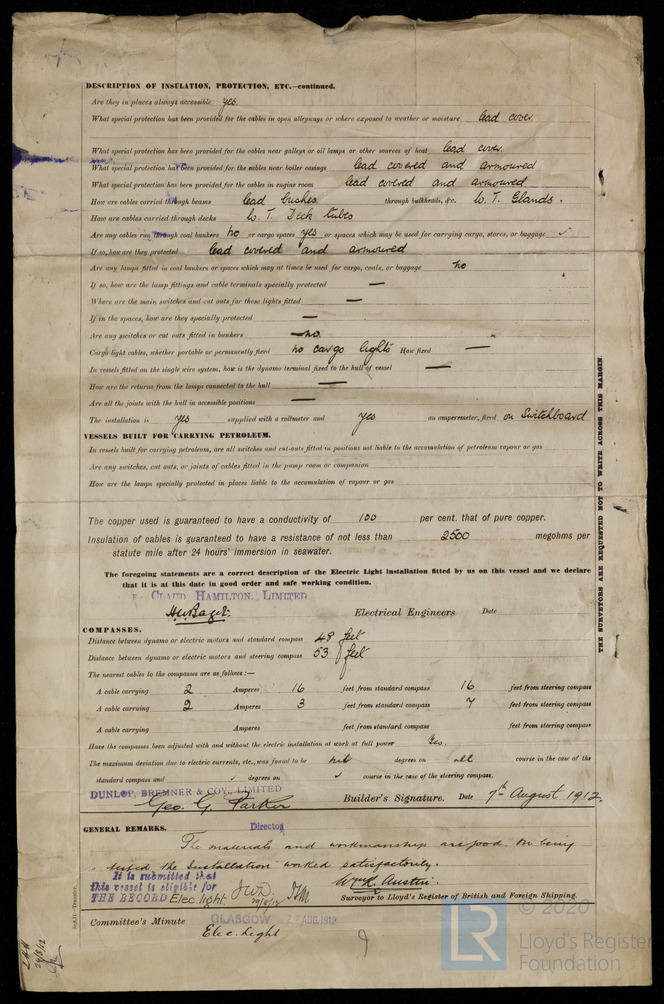 DESCRIPTION OF INSULATION, PROTECTION, ETC.—continued.
Are they in places always accessible yes.
What special protection has been provided for the cables in open alleyways or where exposed to weather or moisture lead cover.
What special protection has been provided for the cables near galleys or oil lamps or other sources of heat lead cover.
What special protection has been provided for the cables near boiler casings lead covered and armoured
What special protection has been provided for the cables in engine room lead covered and armoured
How are cables carried through beams lead bushes. through bulkheads, &c. W. T. Glands.
How are cables carried through decks W. T. Deck tubes
Are any cables run through coal bunkers no or cargo spaces yes or spaces which may be used for carrying cargo, stores, or baggage ✓
If so, how are they protected lead covered and armoured
Are any lamps fitted in coal bunkers or spaces which may at times be used for cargo, coals, or baggage no
If so, how are the lamp fittings and cable terminals specially protected —
Where are the main switches and cut outs for these lights fitted —
If in the spaces, how are they specially protected —
Are any switches or cut outs fitted in bunkers — no.
Cargo light cables, whether portable or permanently fixed no cargo lights How fixed —
In vessels fitted on the single wire system, how is the dynamo terminal fixed to the hull of vessel —
How are the returns from the lamps connected to the hull —
Are all the joints with the hull in accessible positions —
The installation is yes supplied with a voltmeter and yes an amperemeter, fixed on Switchboard
VESSELS BUILT FOR CARRYING PETROLEUM.
In vessels built for carrying petroleum, are all switches and cut-outs fitted in positions not liable to the accumulation of petroleum vapour or gas
Are any switches, cut outs, or joints of cables fitted in the pump room or companion
How are the lamps specially protected in places liable to the accumulation of vapour or gas
The copper used is guaranteed to have a conductivity of 100 per cent. that of pure copper.
Insulation of cables is guaranteed to have a resistance of not less than 2500 megohms per
statute mile after 24 hours' immersion in seawater.
The foregoing statements are a correct description of the Electric Light installation fitted by us on this vessel and we declare
that it is at this date in good order and safe working condition.
CLAUD HAMILTON, LIMITED
Electrical Engineers Date
COMPASSES.
Distance between dynamo or electric motors and standard compass 48 feet
Distance between dynamo or electric motors and steering compass 53 feet
The nearest cables to the compasses are as follows:—
A cable carrying 2 Amperes 16 feet from standard compass 16 feet from steering compass
A cable carrying 2 Amperes 3 feet from standard compass 7 feet from steering compass
A cable carrying Amperes feet from standard compass feet from steering compass
Have the compasses been adjusted with and without the electric installation at work at full power Yes.
The maximum deviation due to electric currents, etc., was found to be nil degrees on all course in the case of the
standard compass and ✓ degrees on ✓ course in the case of the steering compass.
DUNLOP, BREMNER & COY., LIMITED
Geo. G. Parker Builder's Signature. Date 7th August 1912.
Director
GENERAL REMARKS.
The materials and workmanship are good. On being
tested the Installation worked satisfactorily.
It is submitted that
this vessel is eligible for
THE RECORD Elec light
Wm R. Austin.
Surveyor to Lloyd's Register of British and Foreign Shipping.
Committee's Minute GLASGOW AUG. 1912
Elec. Light
THE SURVEYORS ARE REQUESTED NOT TO WRITE ACROSS THIS MARGIN.
© 2020
LR
Lloyd's Register
Foundation